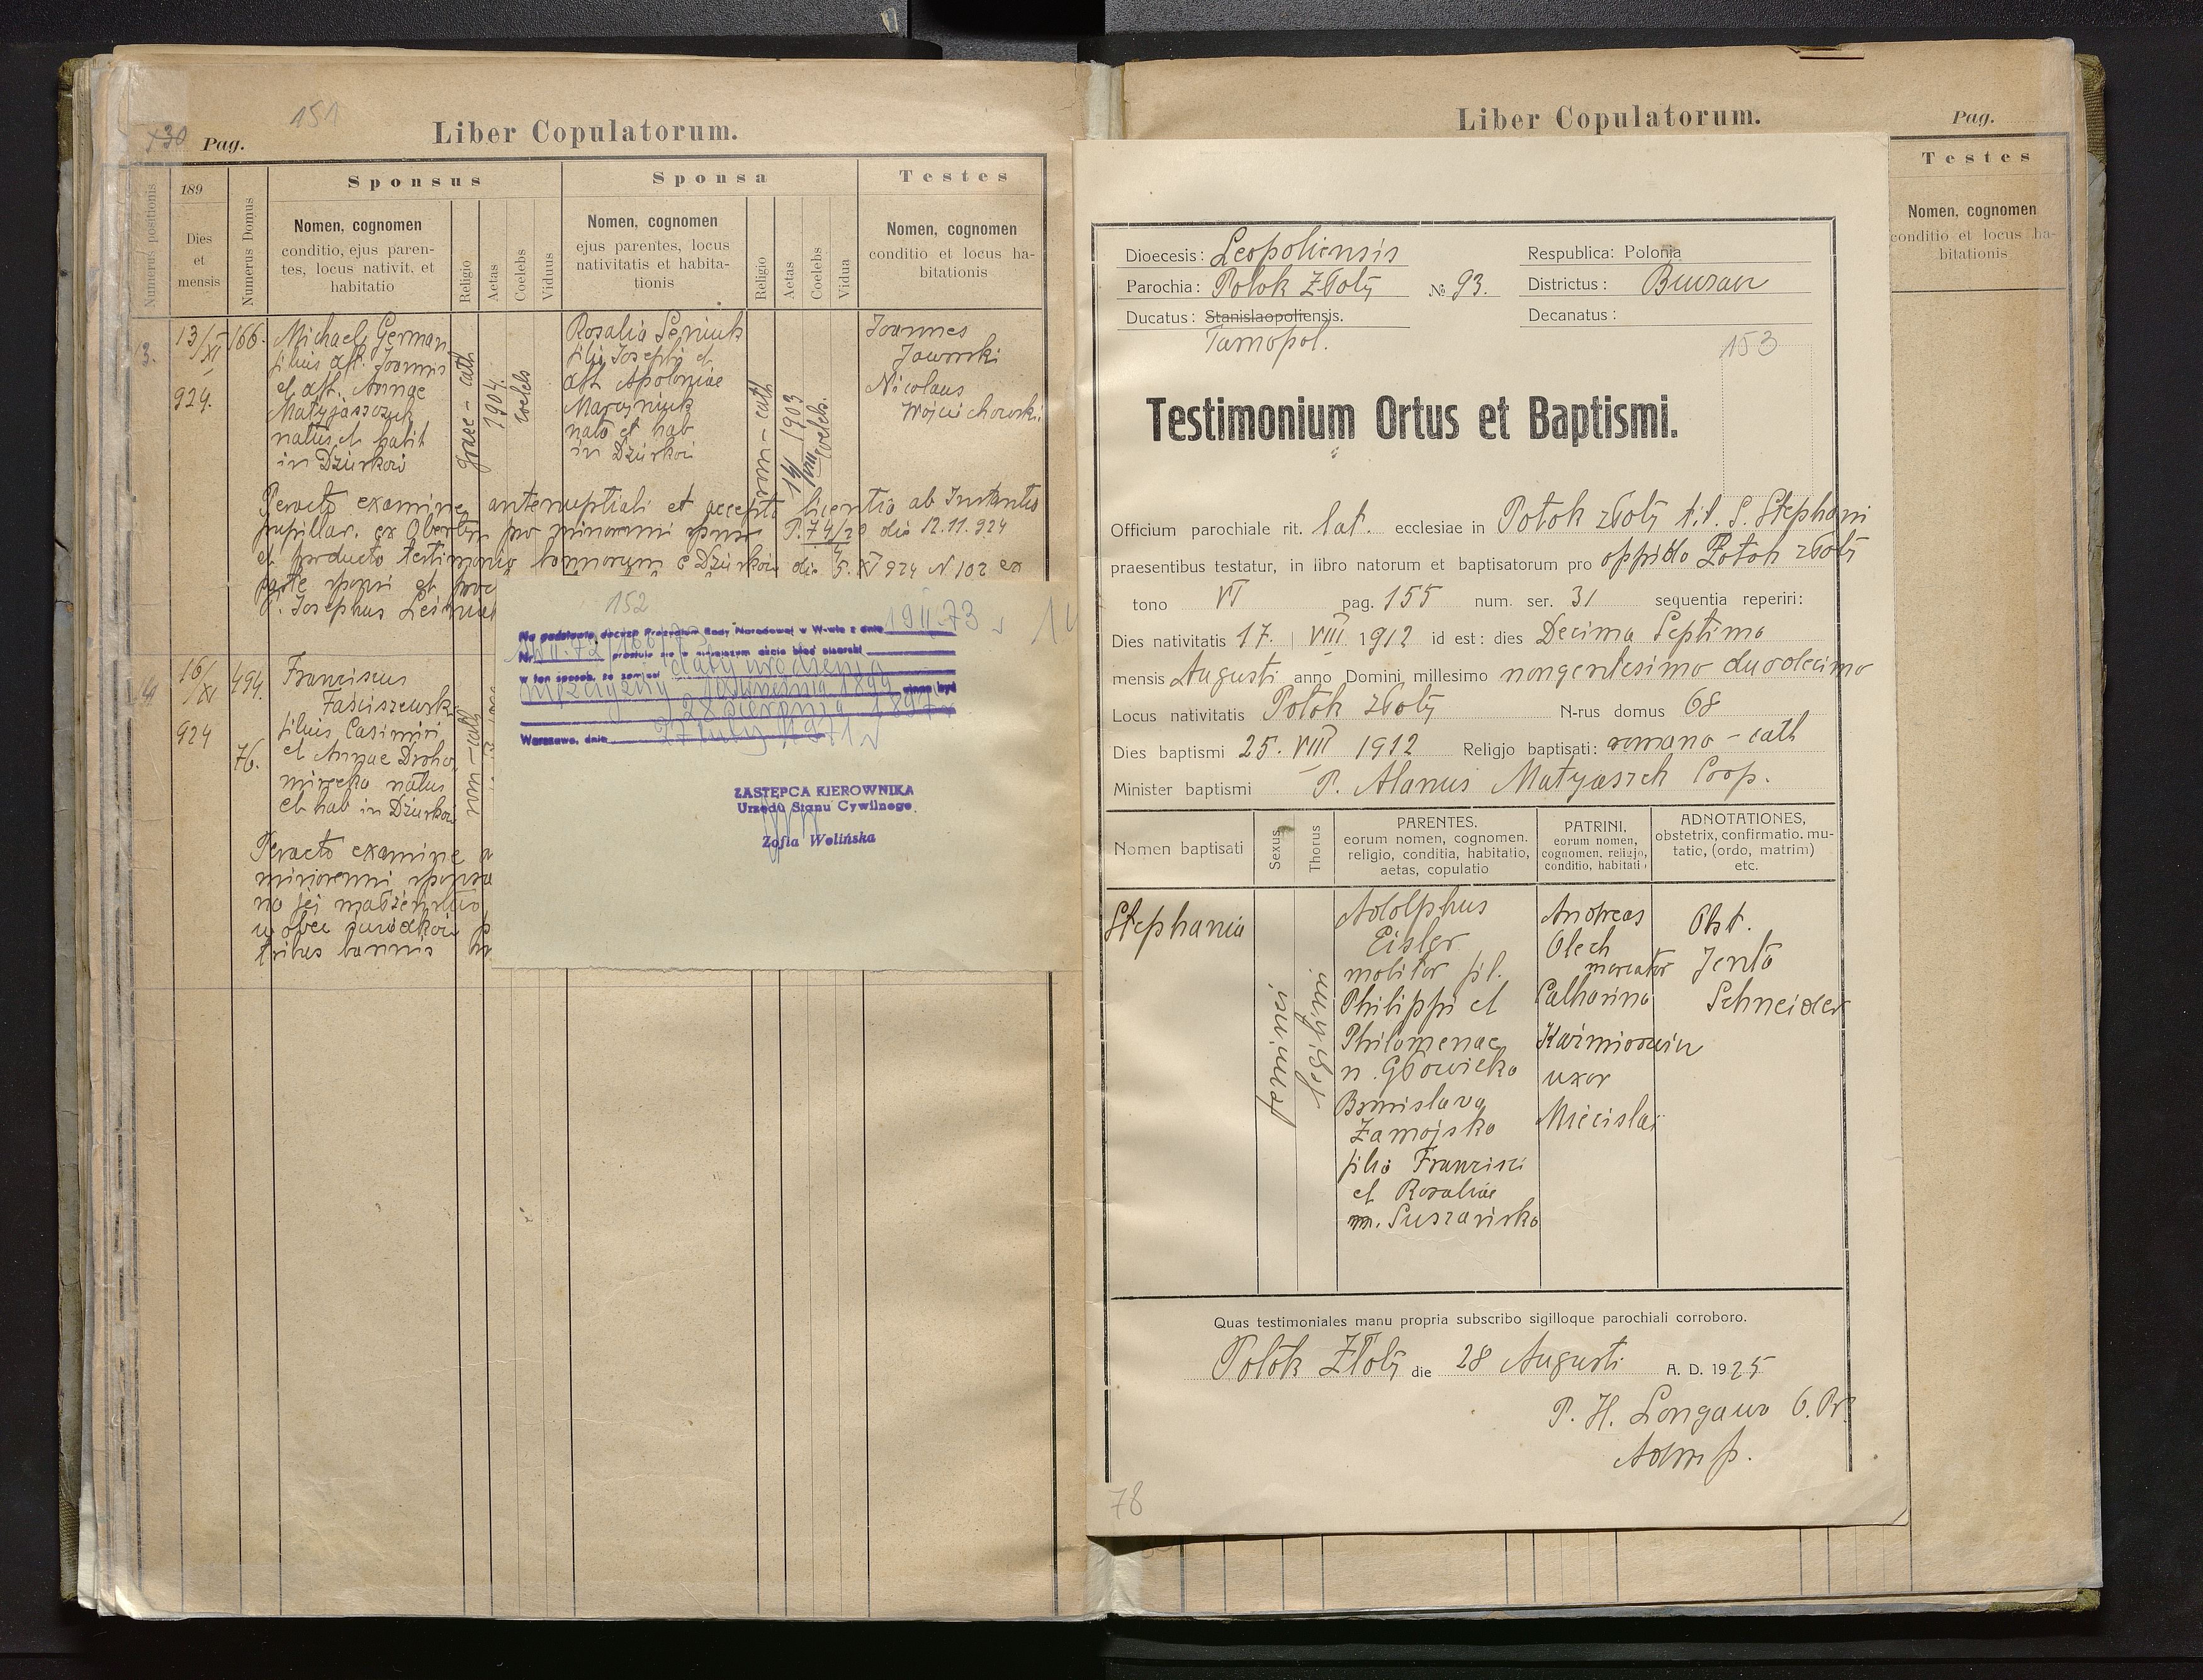 151
130 Pag.
Liber Copulatorum.
Numerus positionis
189
Dies
et
mensis
Numerus Domus
Sponsus
Nomen, cognomen
conditio, ejus paren-
tes, locus nativit. et
habitatio
Religio
Aetas
Coelebs
Viduus
Sponsa
Nomen, cognomen
ejus parentes, locus
nativitatis et habita-
tionis
Religio
Aetas
Coelebs
Vidua
Testes
Nomen, cognomen
conditio et locus ha-
bitationis
3.
13/XI
924.
166.
Michael German
filius aft. Joannis
et aft. Annae
Matyjaszczuk
natus et habit
in Dżurków
graec-cath
1904.
coelebs
Rosalia Seniuk
filia Josephi et
aft Apoloniae
Marcyniuk
nata et hab
in Dżurków
rom-cath
14/VIII 1903
coelebs.
Joannes
Jaworski
Nicolaus
Wojciechowski
Peracto examine antenuptiali et accepta licentia ab Instantia
pupillar. ex Obertyn pro minorenni sponso P.74/20 die 12.11.924
et producto testimonio bannorum e Dżurków die 5.XI 924 N 102 ex
parte sponsi et
P. Josephus
16/XI
924
494.
76.
Franciscus
Faściszewski
filius Casimiri
et Annae Droho
mirecka natus
et hab in Dżurków
rom-cath
Peracto examine
minorenni sponsa
na jej małżeństwo
wobec świadków
tribus bannis
152
Na podstawie decyzji Prezydium Rady Narodowej w W-wie z dnia 19 II 73
Nr prostuje się w niniejszym akcie błąd pisarski
w ten sposób, że zamiast daty urodzenia
mężczyzny 1894 winno być
28 sierpnia 1897 r
Warszawa, dnia
ZASTĘPCA KIEROWNIKA
Urzędu Stanu Cywilnego
Zofia Wolińska
Liber Copulatorum.
Pag.
Testes
Nomen, cognomen
conditio et locus ha-
bitationis
Dioecesis: Leopoliensis
Respublica: Polonia
Parochia: Potok Złoty № 93.
Districtus: Buczacz
Ducatus: Stanislaopoliensis.
Decanatus:
Tarnopol.
153
Testimonium Ortus et Baptismi.
Officium parochiale rit. lat. ecclesiae in Potok złoty t.t. S. Stephani
praesentibus testatur, in libro natorum et baptisatorum pro oppido Potok złoty
tono VI pag. 155 num. ser. 31 sequentia reperiri:
Dies nativitatis 17. VIII 1912 id est: dies Decima Septima
mensis Augusti anno Domini millesimo nongentesimo duodecimo
Locus nativitatis Potok złoty N-rus domus 68
Dies baptismi 25. VIII 1912 Religjo baptisati: romano-cath
Minister baptismi P. Alanus Matyaszek Coop.
Nomen baptisati
Sexus
Thorus
PARENTES,
eorum nomen, cognomen.
religio, conditia, habitatio,
aetas, copulatio
PATRINI,
eorum nomen,
cognomen, religjo,
conditio, habitati.
ADNOTATIONES,
obstetrix, confirmatio, mu-
tatio, (ordo, matrim)
etc.
Stephania
feminei
legitimi
Adolphus
Eisler
molitor fil.
Philippi et
Philomenae
n. Głowicka
Bronislava
Zamojska
filia Francisci
et Rosaliae
n. Suszańska
Andreas
Olech
mercator
Catharina
Kaźmirowicz
uxor
Miecislai
Obst.
Jenta
Schneider
Quas testimoniales manu propria subscribo sigilloque parochiali corroboro.
Potok Złoty die 28 Augusti A. D. 1925
P. H. Longawa O. Pr.
Adm p.
78